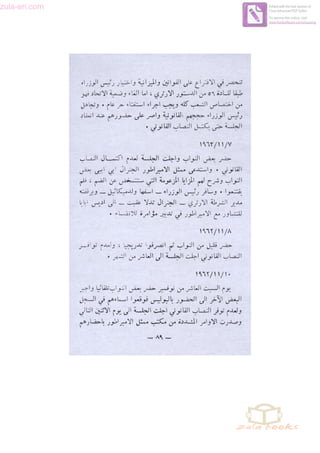 zula-eri.com
لتنحصر في الاقتراع على القوانين والميزانية واختيار رئيس الوزراء
طبقا للمادة ٥٦ من الدستور الارتري ، اما الغاء وضعية الاتحاد فهو
من اختصاص الشعب كله ويجب اجراء استفتاء حر عام • وتجاهل
رئيس الوزراء حججهم القانونية واصر على حضورهم عند انعقاد
الجلسة حتى يكتمل النصاب القانوني •
١٩٦٢/١١/٧
حضر بعض النواب واجلت الجلسة لعدم اكتمال النصاب
القانوني • واستدعى ممثل الامبراطور الجنرال ابي ابيي بعض
النواب وشرح لهم المزايا المزعومة التي ستتمخض عن الضم ، فلم
يقتنعوا • وسافر رئيس الوزراء – اسفها ولدميكائيل – وبرفقته
مدير الشرطة الارتري – الجنرال تدلا عقبيت – الى اديس ابابا
للتشاور مع الامبراطور في تدبير مؤامرة للانضمام •
١٩٦٢/١١/٨
حضر قليل من النواب ثم انصرفوا تدريجيا ، ولعدم توافر
النصاب القانوني اجلت الجلسة الى العاشر من الشهر •
١٩٦٢/١١/١٠
يوم السبت العاشر من نوفمبر حضر بعض النواب تلقائيا واجبر
البعض الآخر الى الحضور بالبوليس فوقعوا اسماءهم في السجل
ولعدم توفر النصاب القانوني اجلت الجلسة الى يوم الاثنين التالي
وصدرت الاوامر المشددة من مكتب ممثل الامبراطور باحضارهم
— ٨٩ —
zula books